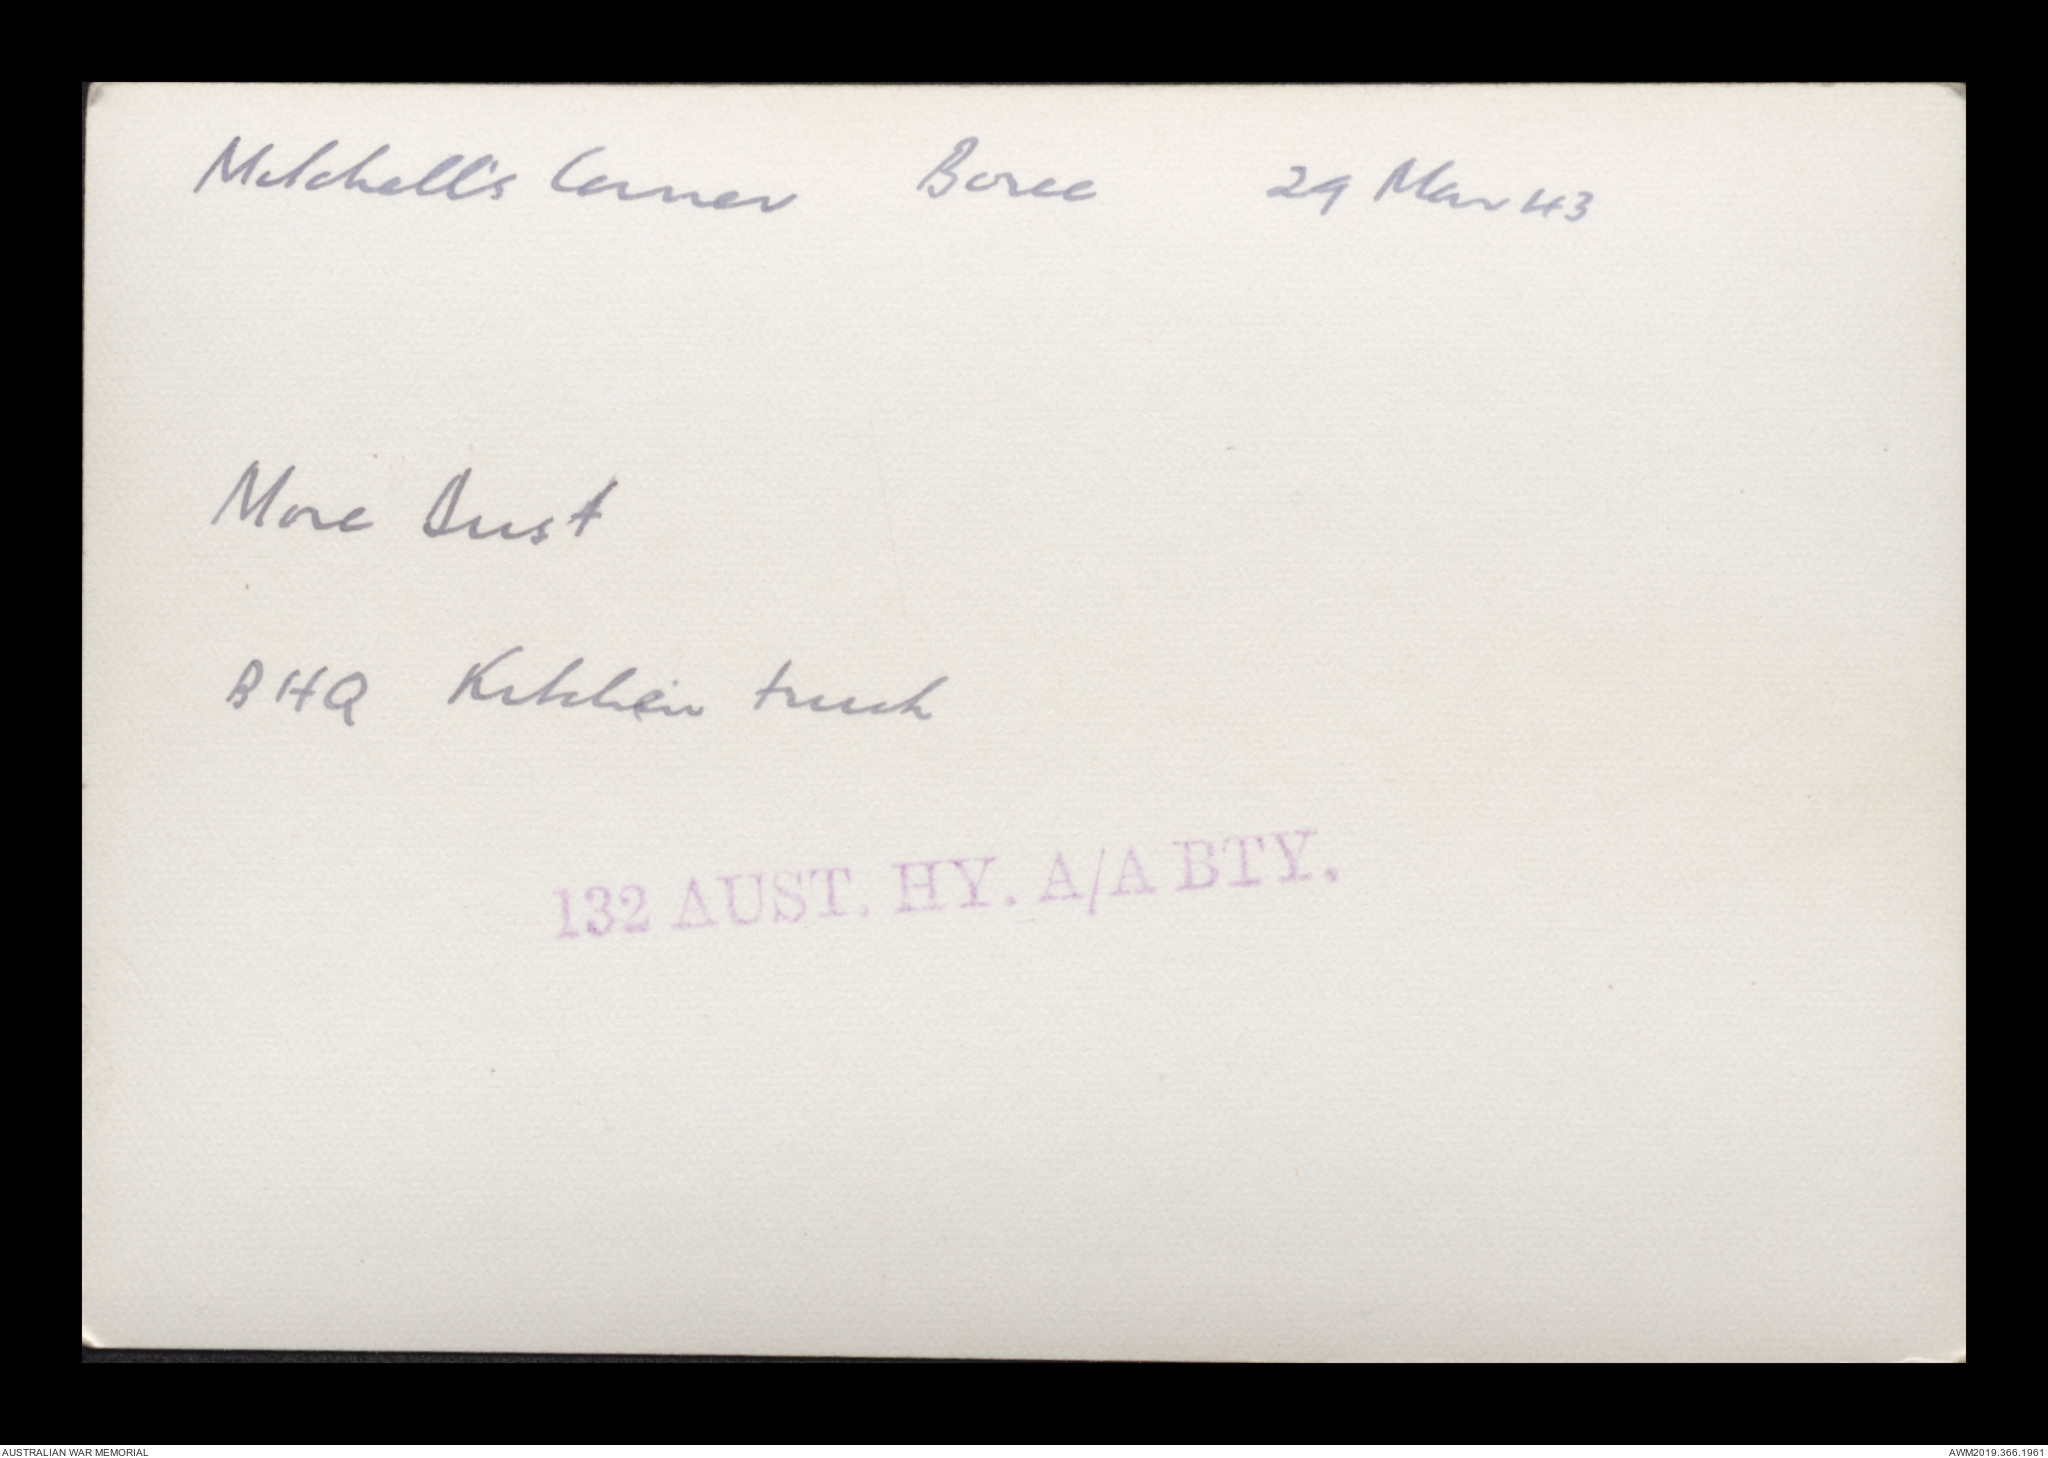 Mitchell's Corner Boree 29 Mar 43
More Dust
BHQ Kitchen truck
132 AUST. HY. A/A BTY.
AUSTRALIAN WAR MEMORIAL
AWM2019.366.1961